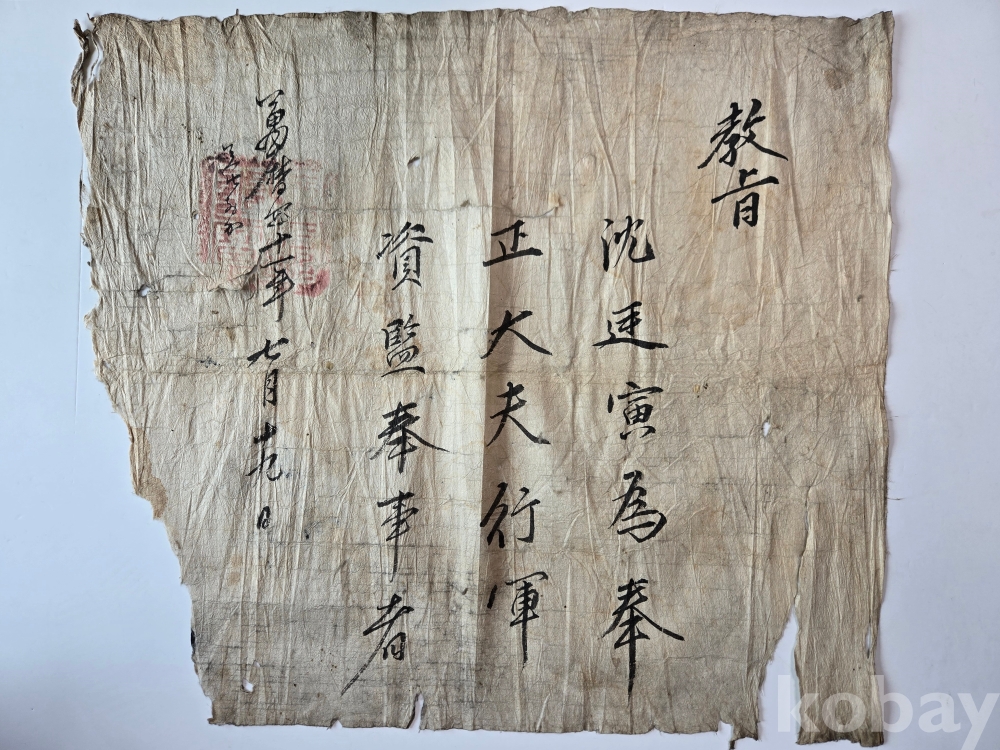 教旨
沈廷寅為奉
正大夫行軍
資監奉事者
萬曆四十一年七月十九日
kobay